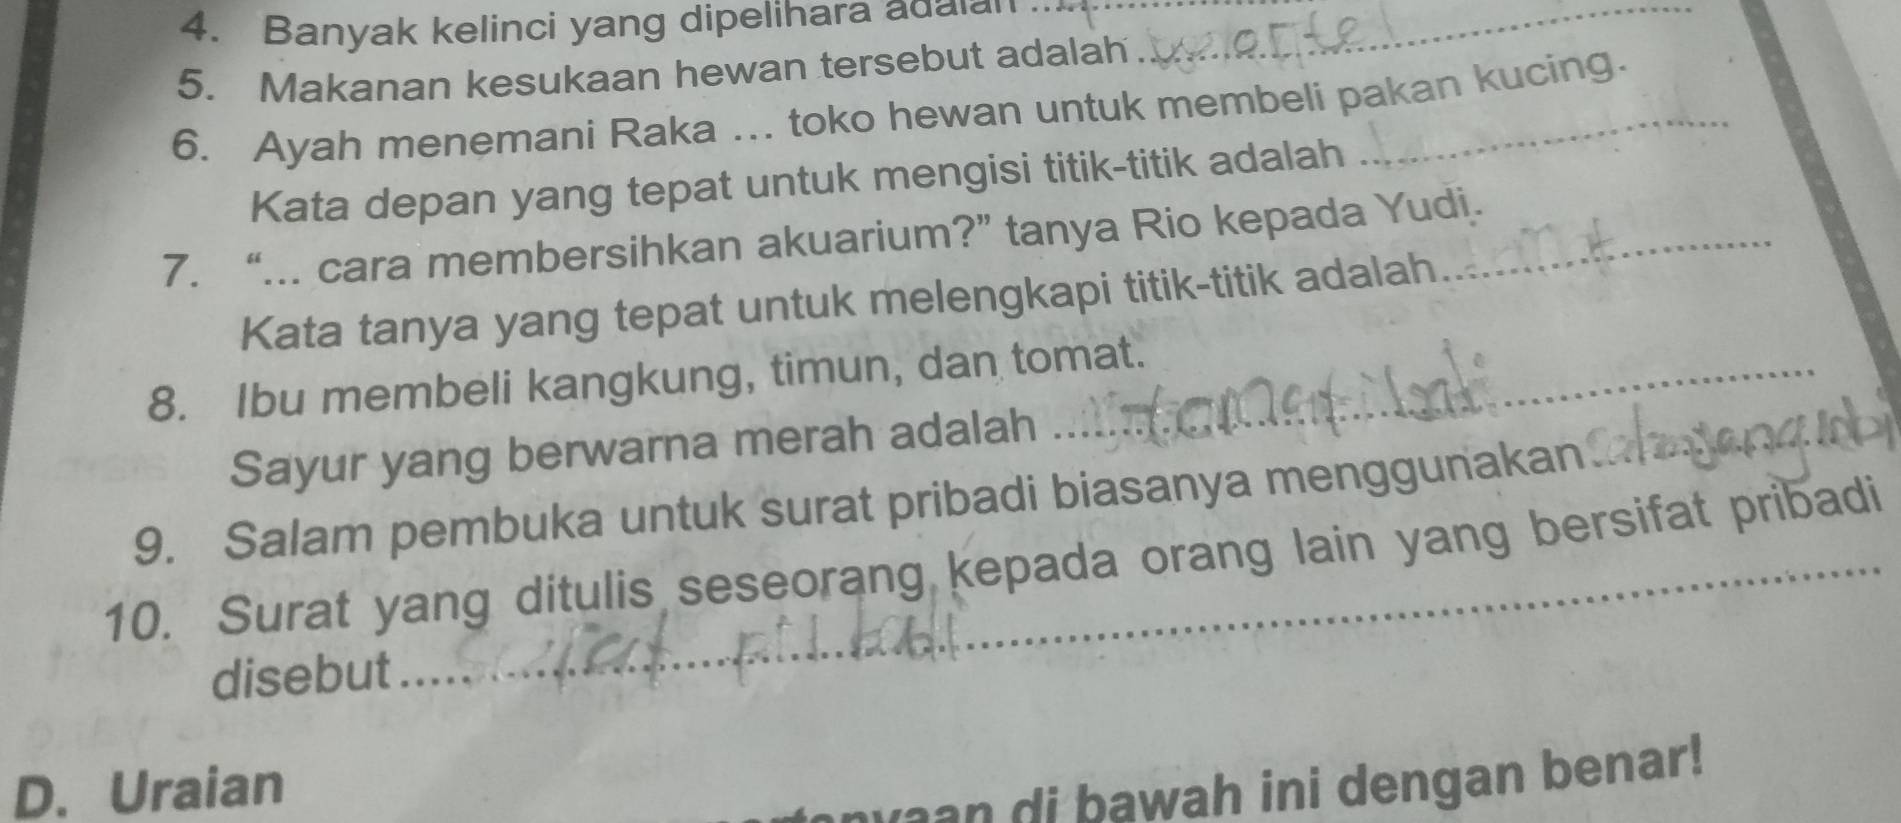 4. Banyak kelinci yang dipelihara adalah ....
5. Makanan kesukaan hewan tersebut adalah .... wortel
6. Ayah menemani Raka ... toko hewan untuk membeli pakan kucing.
Kata depan yang tepat untuk mengisi titik-titik adalah ....
7. “... cara membersihkan akuarium?” tanya Rio kepada Yudi.
Kata tanya yang tepat untuk melengkapi titik-titik adalah....
8. Ibu membeli kangkung, timun, dan tomat.
Sayur yang berwarna merah adalah ....
9. Salam pembuka untuk surat pribadi biasanya menggunakan....
10. Surat yang ditulis seseorang kepada orang lain yang bersifat pribadi
disebut....
D. Uraian
di bawah ini dengan benar!